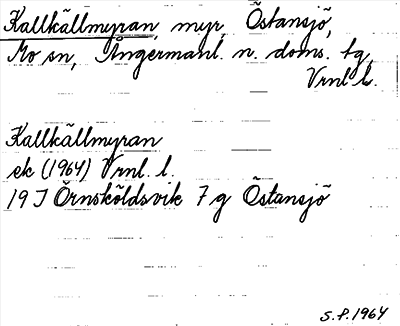 Kallkällmyran, myr, Östansjö,
Mo sn, Ångermanl. n. doms. tg,
Vrnl l.
Kallkällmyran
ek (1964) Vrnl. l.
19 J Örnsköldsvik 7 g Östansjö
S.P. 1964